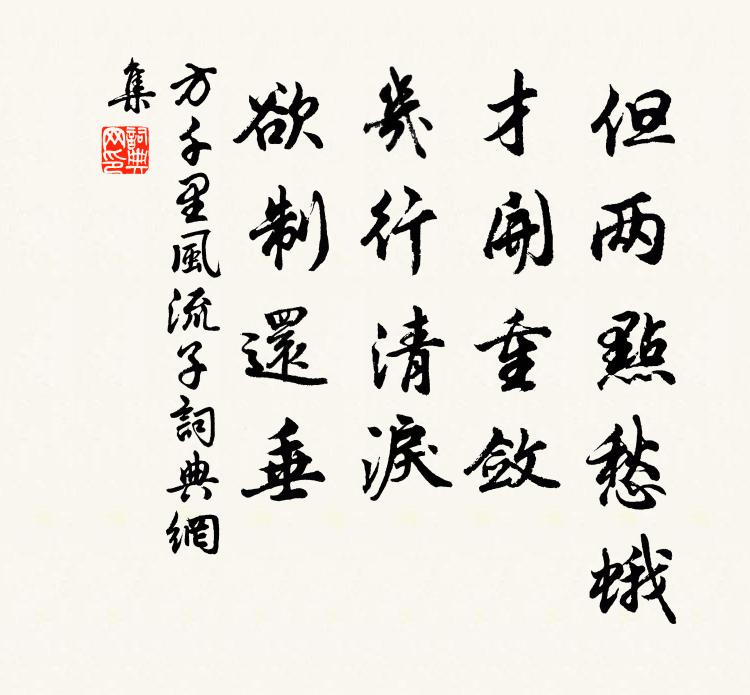 但两點愁蛾
才開重斂
幾行清淚
欲制還垂
方千里風流子詞典網
集
詞典網印